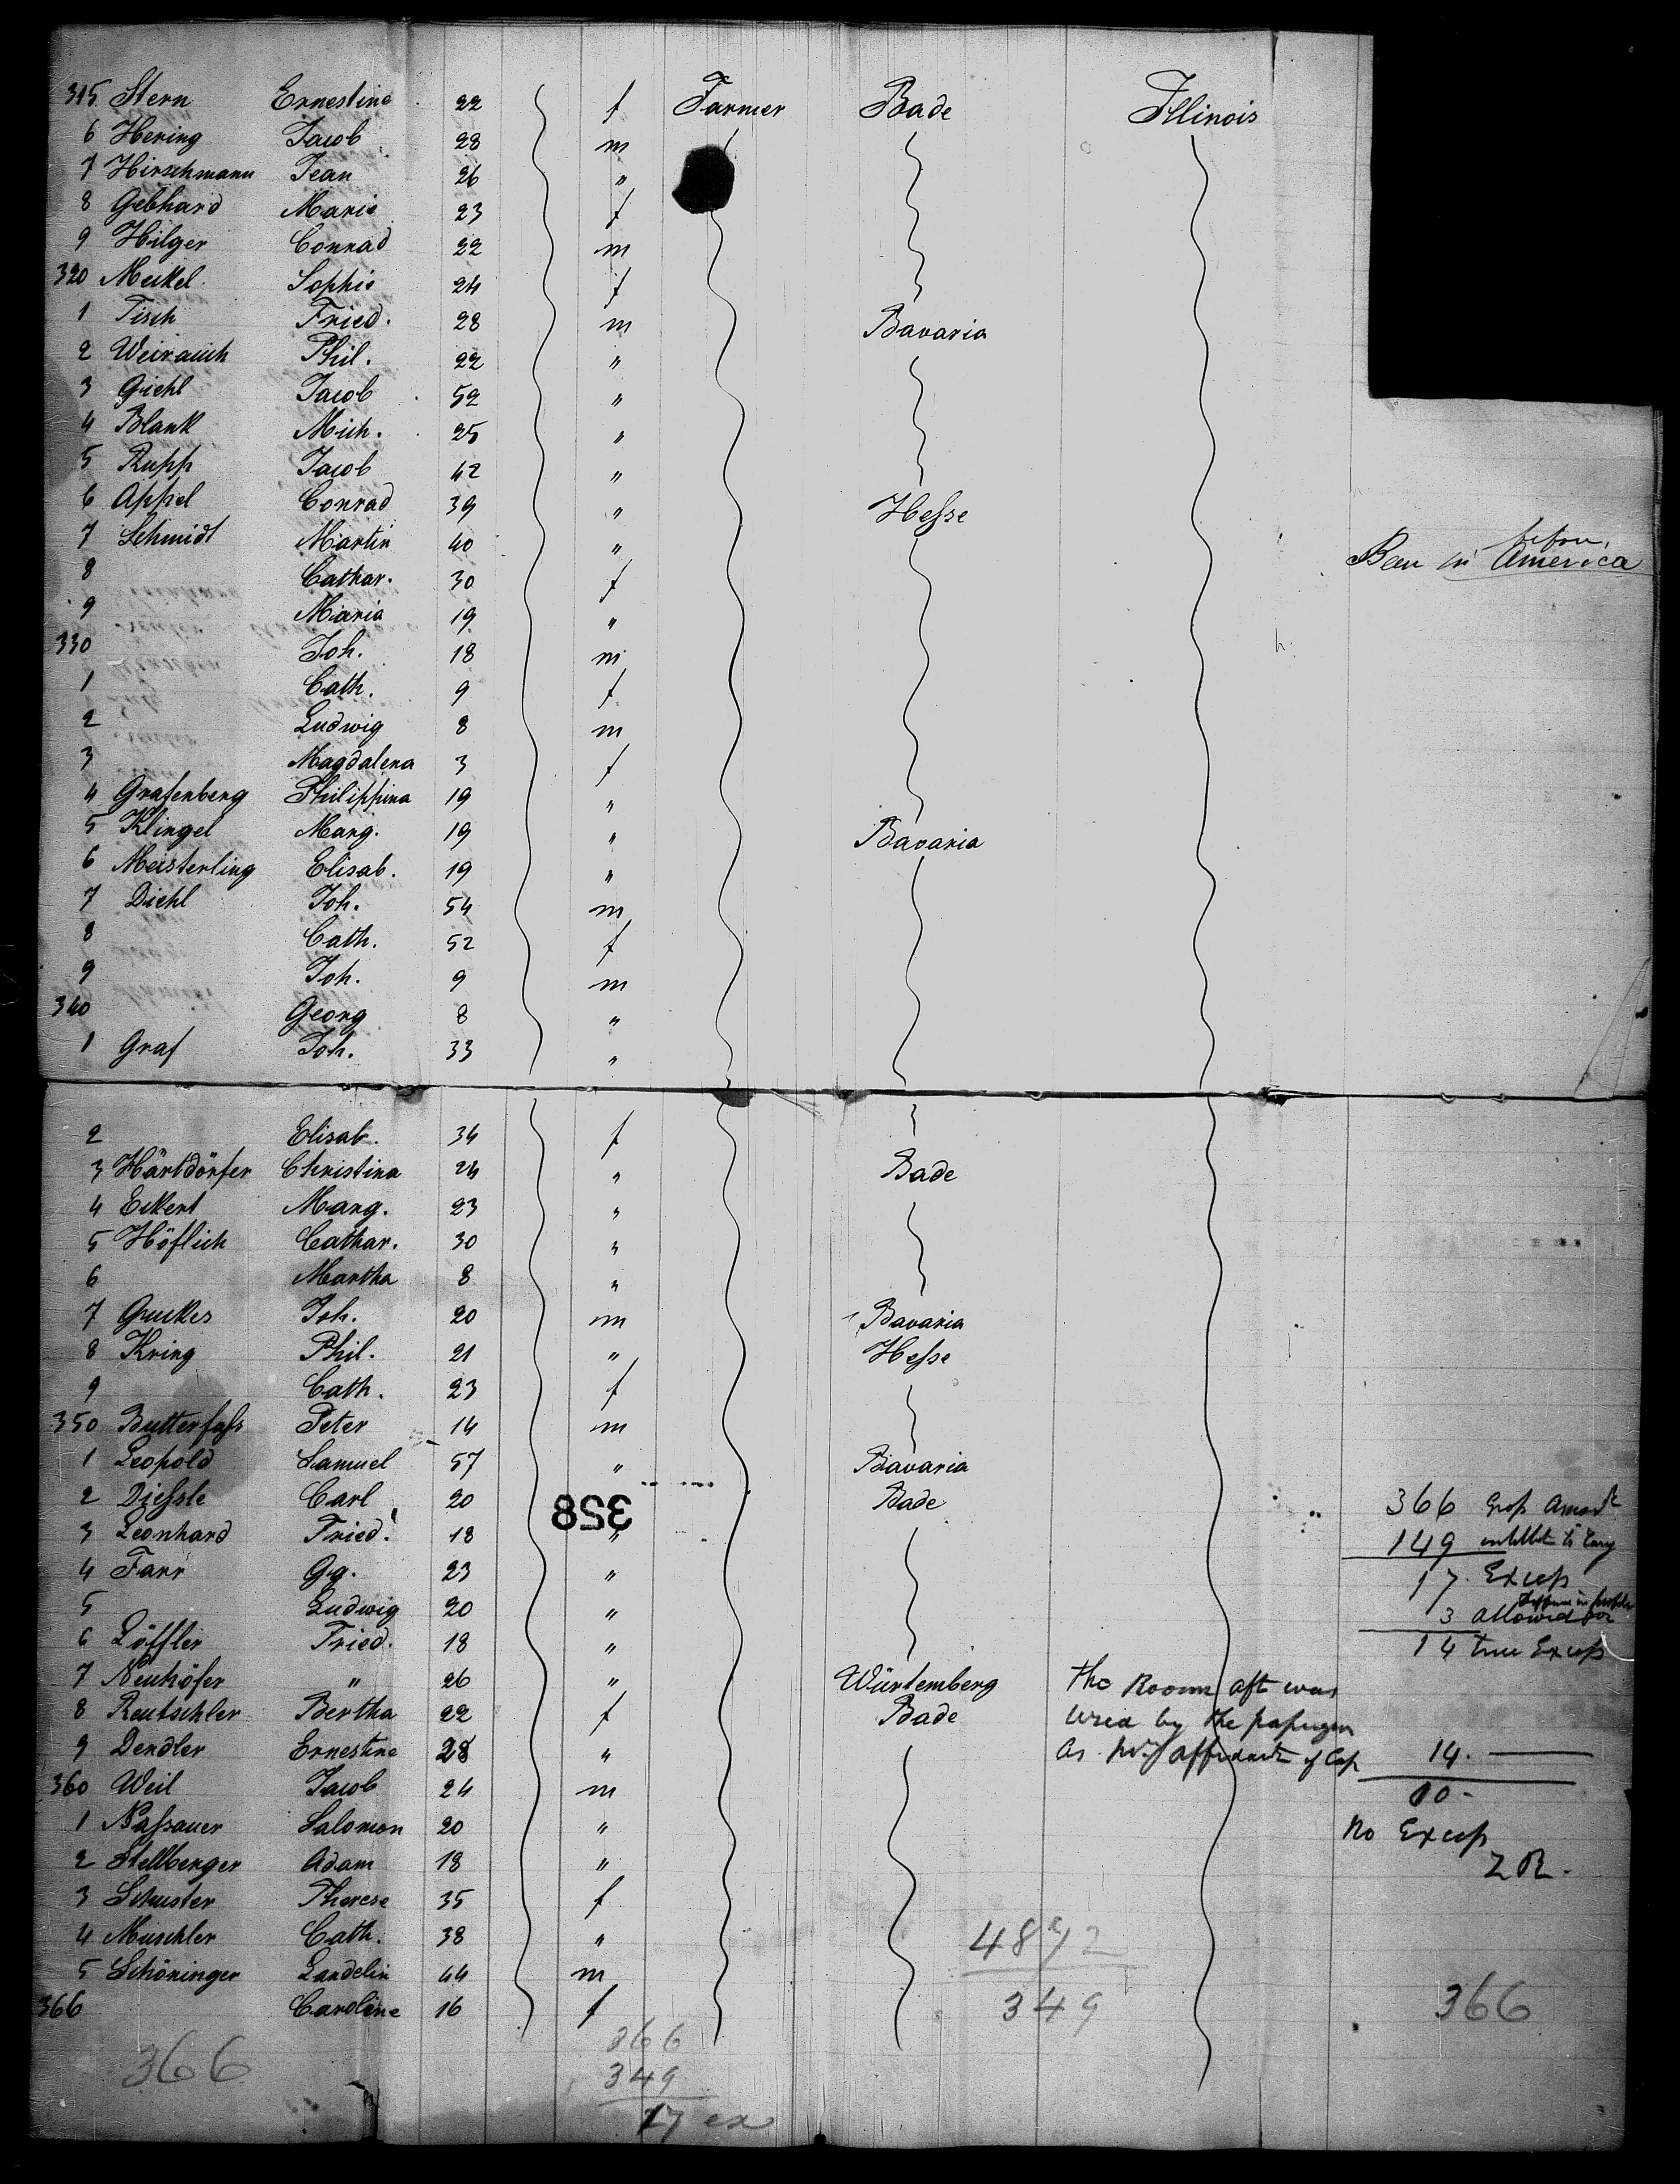 315 Stern Ernestine 22 f Farmer Bade Illinois
6 Hering Jacob 28 m
7 Hirschmann Jean 26 "
8 Gebhard Marie 23 f
9 Hilger Conrad 22 m
320 Meikel Sophie 24 f
1 Tisch Fried. 28 m Bavaria
2 Weirauch Phil. 22 "
3 Giehl Jacob 52 "
4 Blank Mich. 25 "
5 Rupp Jacob 42 "
6 Appel Conrad 39 " Hesse
7 Schmidt Martin 40 "
before
Been in America
8 Cathar. 30 f
9 Maria 19 "
330 Joh. 18 m
1 Cath. 9 f
2 Ludwig 8 m
3 Magdalena 3 f
4 Grafenberg Philippina 19 "
5 Klingel Marg. 19 " Bavaria
6 Meisterling Elisab. 19 "
7 Diehl Joh. 54 m
8 Cath. 52 f
9 Joh. 9 m
340 Georg 8 "
1 Graf Joh. 33 "
2 Elisab. 34 f
3 Härtdörfer Christina 24 " Bade
4 Eckert Marg. 23 "
5 Höflich Cathar. 30 "
6 Martha 8 "
7 Guckes Joh. 20 m Bavaria
8 Kring Phil. 21 " Hesse
9 Cath. 23 f
350 Butterfaß Peter 14 m
1 Leopold Samuel 57 " Bavaria
2 Dießle Carl 20 Bade 366
358
3 Leonhard Fried. 18 " 149
4 Farr Gg. 23 " 17. Excess
5 Ludwig 20 " 3 allowed for
6 Löffler Fried. 18 " 14 true Excess
7 Neuhöfer " 26 " Würtemberg The Room aft was
8 Reutschler Bertha 22 f Bade used by the passenger
9 Dendler Ernestine 28 " as affidavit of Cap 14.
360 Weil Jacob 24 m 00
1 Naßauer Salomon 20 " No Excess
2 Stellberger Adam 18 "
3 Schuster Therese 35 f
4 Muschler Cath. 38 "
5 Schöninger Landelin 44 m
366 Caroline 16 f 349 366
366 366
349
17 ex